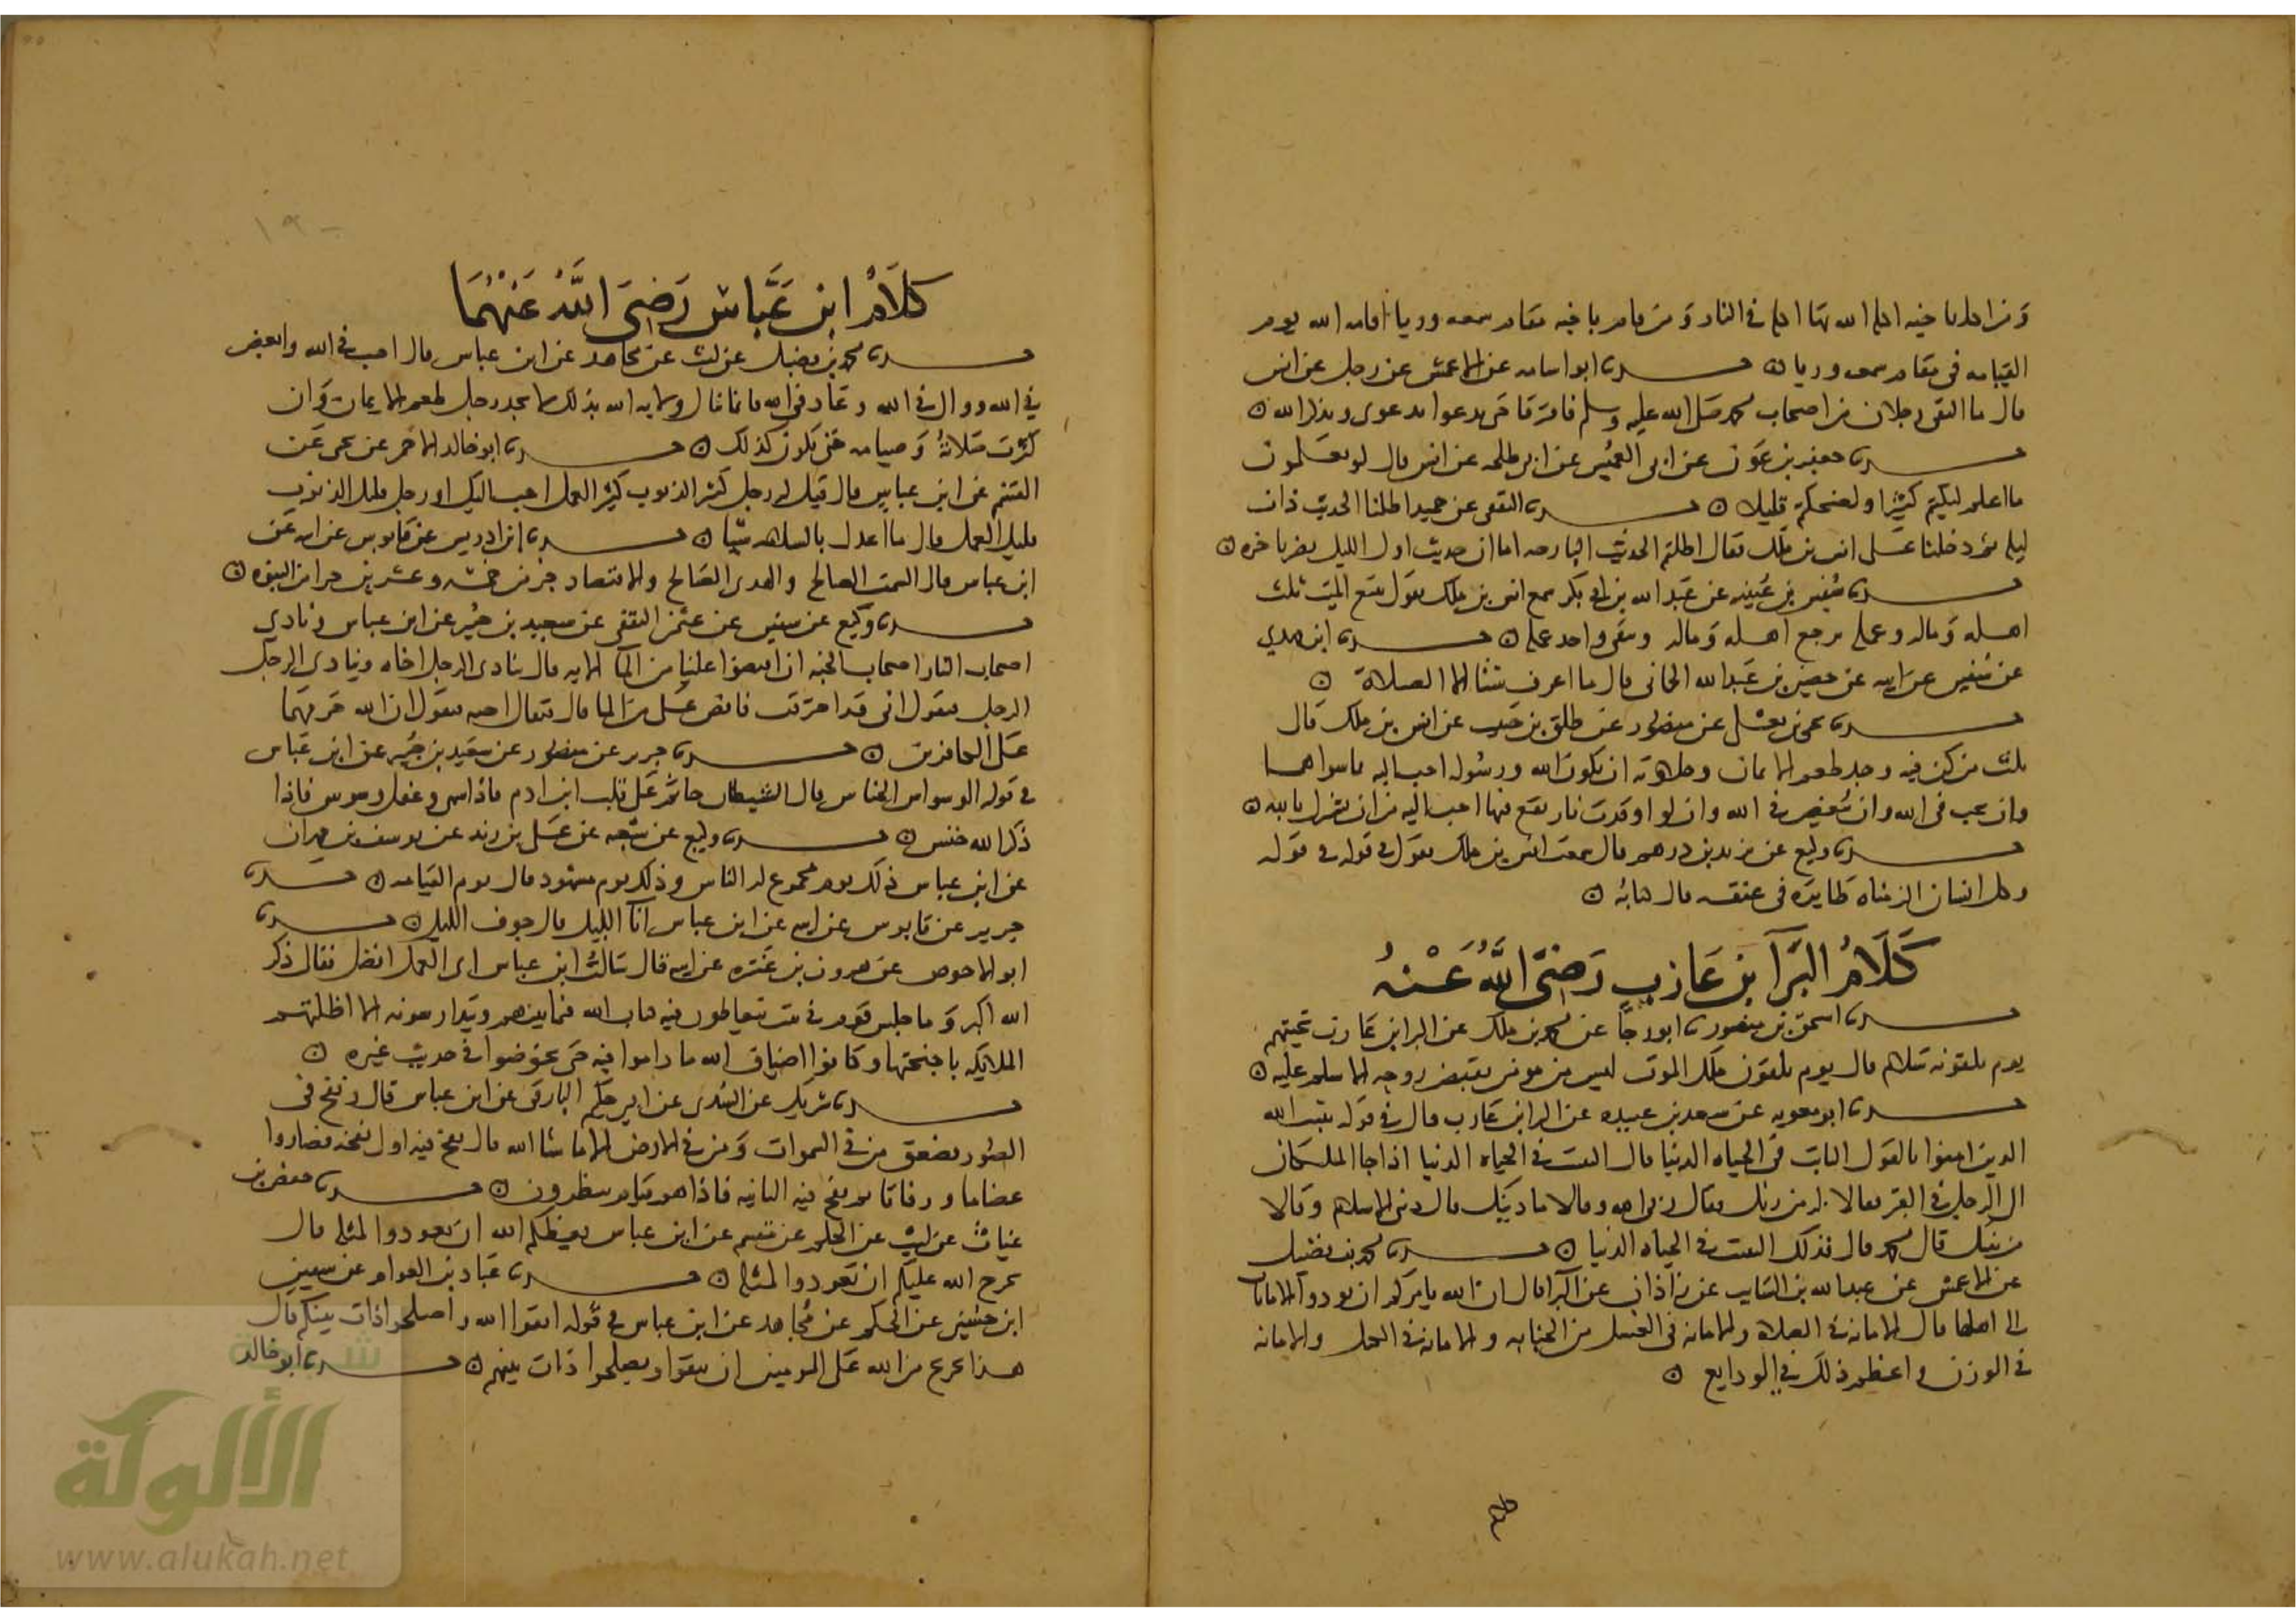 ومن اكل باخيه اكله الله بها اكله في النار ومن قام باخيه مقام سمعه وريا اقامه الله يوم
القيامه في مقام سمعه وريا ٥ حدثنا ابو اسامه عن الاعمش عن رجل عن انس
قال ما التقى رجلان من اصحاب محمد صلى الله عليه وسلم فافترقا حتى يدعوا بدعوى ويذكرا الله ٥
حدثنا جعفر بن عون عن ابي العميس عن ابي طلحه عن انس قال لو تعلمون
ما اعلم لبكيتم كثيرا ولضحكتم قليلا ٥ حدثنا الثقفي عن حميد اطلنا الحديث ذات
ليله ثم دخلنا على انس بن ملك فقال اطلتم الحديث البارحه اما ان حديث اول الليل يضر باخره ٥
حدثنا سفين بن عيينه عن عبد الله بن ابي بكر سمع انس بن ملك يقول يتبع الميت ثلث
اهله وماله وعمله يرجع اهله وماله ويبقى واحد عمله ٥ حدثنا ابن مهدي
عن سفين عن ابيه عن حصين بن عبد الله الحاني قال ما اعرف شيئا الا الصلاة ٥
حدثنا يحيى بن يعلى عن منصور عن طلق بن حبيب عن انس بن ملك قال
ثلث من كن فيه وجد طعم الايمان وحلاوته ان يكون الله ورسوله احب اليه مما سواهما
وان يحب في الله وان يبغض في الله وان لو اوقدت نار يقع فيها احب اليه من ان يشرك بالله ٥
حدثنا وكيع عن يزيد بن درهم قال سمعت انس بن ملك يقول في قوله في قوله
وكل انسان الزمناه طايره في عنقه قال كتابه ٥
كلام البرآ ابن عازب رضي الله عنه
حدثنا اسحق بن منصور نا ابو رجا عن محمد بن ملك عن البرا بن عازب تحيتهم
يوم يلقونه سلام قال يوم يلقون ملك الموت ليس من مومن يقبض روحه الا سلم عليه ٥
حدثنا ابو معويه عن سعد بن عبيده عن البرا بن عازب قال في قوله يثبت الله
الذين امنوا بالقول الثابت في الحياه الدنيا قال التثبيت في الحياه الدنيا اذا جا الملكان
الى الرجل في القبر فقالا له من ربك فقال ربي الله وقالا ما دينك قال ديني الاسلام وقالا
من نبيك قال محمد قال فذلك التثبيت في الحياه الدنيا ٥ حدثنا محمد بن فضيل
عن الاعمش عن عبد الله بن السايب عن زاذان عن البرا قال ان الله يامركم ان تودوا الامانات
الى اهلها قال الامانه في الصلاة والامانه في الغسل من الجنابه والامانه في الكيل والامانه
في الوزن واعظم ذلك في الودايع ٥
كلام ابن عباس رضي الله عنهما
حدثنا محمد بن فضيل عن ليث عن مجاهد عن ابن عباس قال احب في الله وابغض
في الله ووال في الله وعاد في الله فانما تنال ولايه الله بذلك لا يجد رجل طعم الايمان وان
كثرت صلاته وصيامه حتى يكون كذلك ٥ حدثنا ابو خالد الاحمر عن يحيى عن
القسم عن ابن عباس قال قيل له رجل كثير الذنوب كثير العمل احب اليك او رجل قليل الذنوب
قليل العمل قال ما اعدل بالسلامه شيا ٥ حدثنا ابن ادريس عن قابوس عن ابيه عن
ابن عباس قال السمت الصالح والهدي الصالح والاقتصاد جز من خمسه وعشرين جزا من النبوه ٥
حدثنا وكيع عن سفين عن عثمن الثقفي عن سعيد بن جبير عن ابن عباس ونادى
اصحاب النار اصحاب الجنه ان افيضوا علينا من الما الايه قال ينادي الرجل اخاه وينادي الرجل
الرجل فيقول اني قد احترقت فافض علي من الما قال فيقال اجبه فيقول ان الله حرمهما
على الكافرين ٥ حدثنا جرير عن منصور عن سعيد بن جبير عن ابن عباس
في قوله الوسواس الخناس قال الشيطان جاثم على قلب ابن ادم فاذا سهى وغفل وسوس فاذا
ذكر الله خنس ٥ حدثنا وكيع عن شعبه عن علي بن زيد عن يوسف بن مهران
عن ابن عباس ذلك يوم مجموع له الناس وذلك يوم مشهود قال يوم القيامه ٥ حدثنا
جرير عن قابوس عن ابيه عن ابن عباس آنا الليل قال جوف الليل ٥ حدثنا
ابو الاحوص عن هرون بن عنتره عن ابيه قال سالت ابن عباس اي العمل افضل فقال ذكر
الله اكبر وما جلس قوم في بيت يتعاطون فيه كتاب الله فيما بينهم ويتدارسونه الا اظلتهم
الملايكه باجنحتها وكانوا اضياف الله ما داموا فيه حتى يخوضوا في حديث غيره ٥
حدثنا شريك عن السدي عن ابي حكيم البارقي عن ابن عباس قال ونفخ في
الصور فصعق من في السموات ومن في الارض الا ما شا الله قال نفخ فيه اول نفخه فصاروا
عضاما ورفاتا ثم نفخ فيه الثانيه فاذا هم قيام ينظرون ٥ حدثنا حفص بن
غياث عن ليث عن الحكم عن مقسم عن ابن عباس يعظكم الله ان تعودوا لمثله قال
يحرج الله عليكم ان تعودوا لمثله ٥ حدثنا عباد بن العوام عن سفين
ابن حسين عن الحكم عن مجاهد عن ابن عباس في قوله اتقوا الله واصلحوا ذات بينكم قال
هذا تحريج من الله على المومنين ان يتقوا ويصلحوا ذات بينهم ٥ حدثنا ابو خالد
الألوكة
www.alukah.net